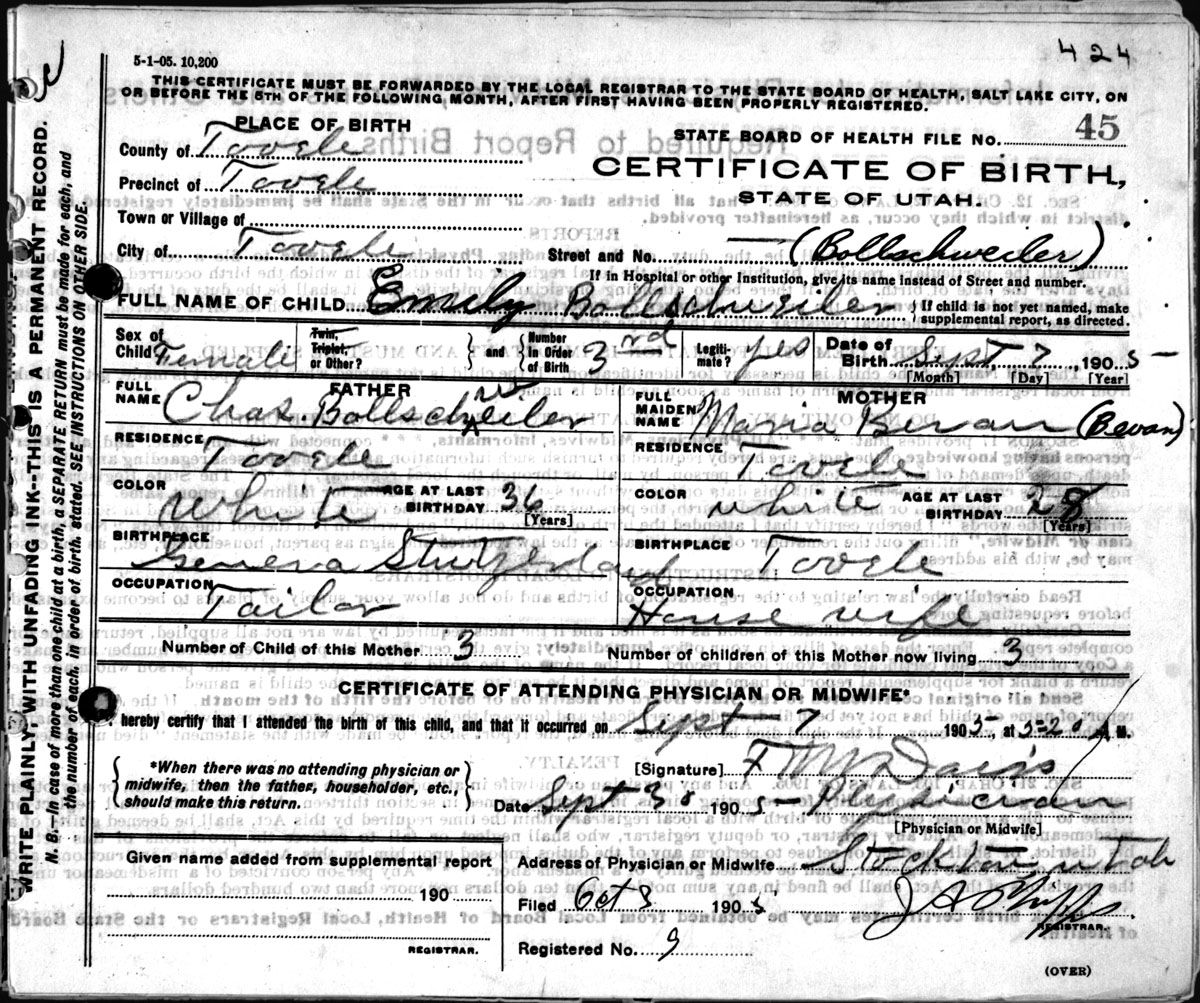 424
5-1-05. 10,200
THIS CERTIFICATE MUST BE FORWARDED BY THE LOCAL REGISTRAR TO THE STATE BOARD OF HEALTH, SALT LAKE CITY, ON
OR BEFORE THE 5TH OF THE FOLLOWING MONTH, AFTER FIRST HAVING BEEN PROPERLY REGISTERED.
PLACE OF BIRTH
STATE BOARD OF HEALTH FILE No. 45
County of Tooele
CERTIFICATE OF BIRTH,
Precinct of Tooele
STATE OF UTAH.
Town or Village of
City of Tooele Street and No. — (Bollschweiler)
If in Hospital or other Institution, give its name instead of Street and number.
FULL NAME OF CHILD Emily Bollschweiler { If child is not yet named, make supplemental report, as directed.
Sex of Child Female Twin, Triplet, or Other? } and { Number in Order of Birth 3rd Legiti-mate? yes Date of Birth Sept, 7, 1905
[Month] [Day] [Year]
FATHER
FULL NAME Chas. Bollschweiler
RESIDENCE Tooele
COLOR White AGE AT LAST BIRTHDAY 36 [Years]
BIRTHPLACE Geneva
OCCUPATION Tailor
MOTHER
FULL MAIDEN NAME Maria Bevan (Bevan)
RESIDENCE Tooele
COLOR white AGE AT LAST BIRTHDAY 28 [Years]
BIRTHPLACE Tooele
OCCUPATION House wife
Number of Child of this Mother 3 Number of children of this Mother now living 3
CERTIFICATE OF ATTENDING PHYSICIAN OR MIDWIFE*
I hereby certify that I attended the birth of this child, and that it occurred on Sept 7 1905, at 5-20 A.M.
{ *When there was no attending physician or midwife, then the father, householder, etc., should make this return. }
[Signature] F M Davis
Date Sept 30 1905 Physician
[Physician or Midwife]
Given name added from supplemental report
190
REGISTRAR.
Address of Physician or Midwife Stockton Utah
Filed Oct 3 1905
REGISTRAR.
Registered No. 9
(OVER)
WRITE PLAINLY, WITH UNFADING INK--THIS IS A PERMANENT RECORD.
N. B.—In case of more than one child at a birth, a SEPARATE RETURN must be made for each, and
the number of each, in order of birth, stated. SEE INSTRUCTIONS ON OTHER SIDE.